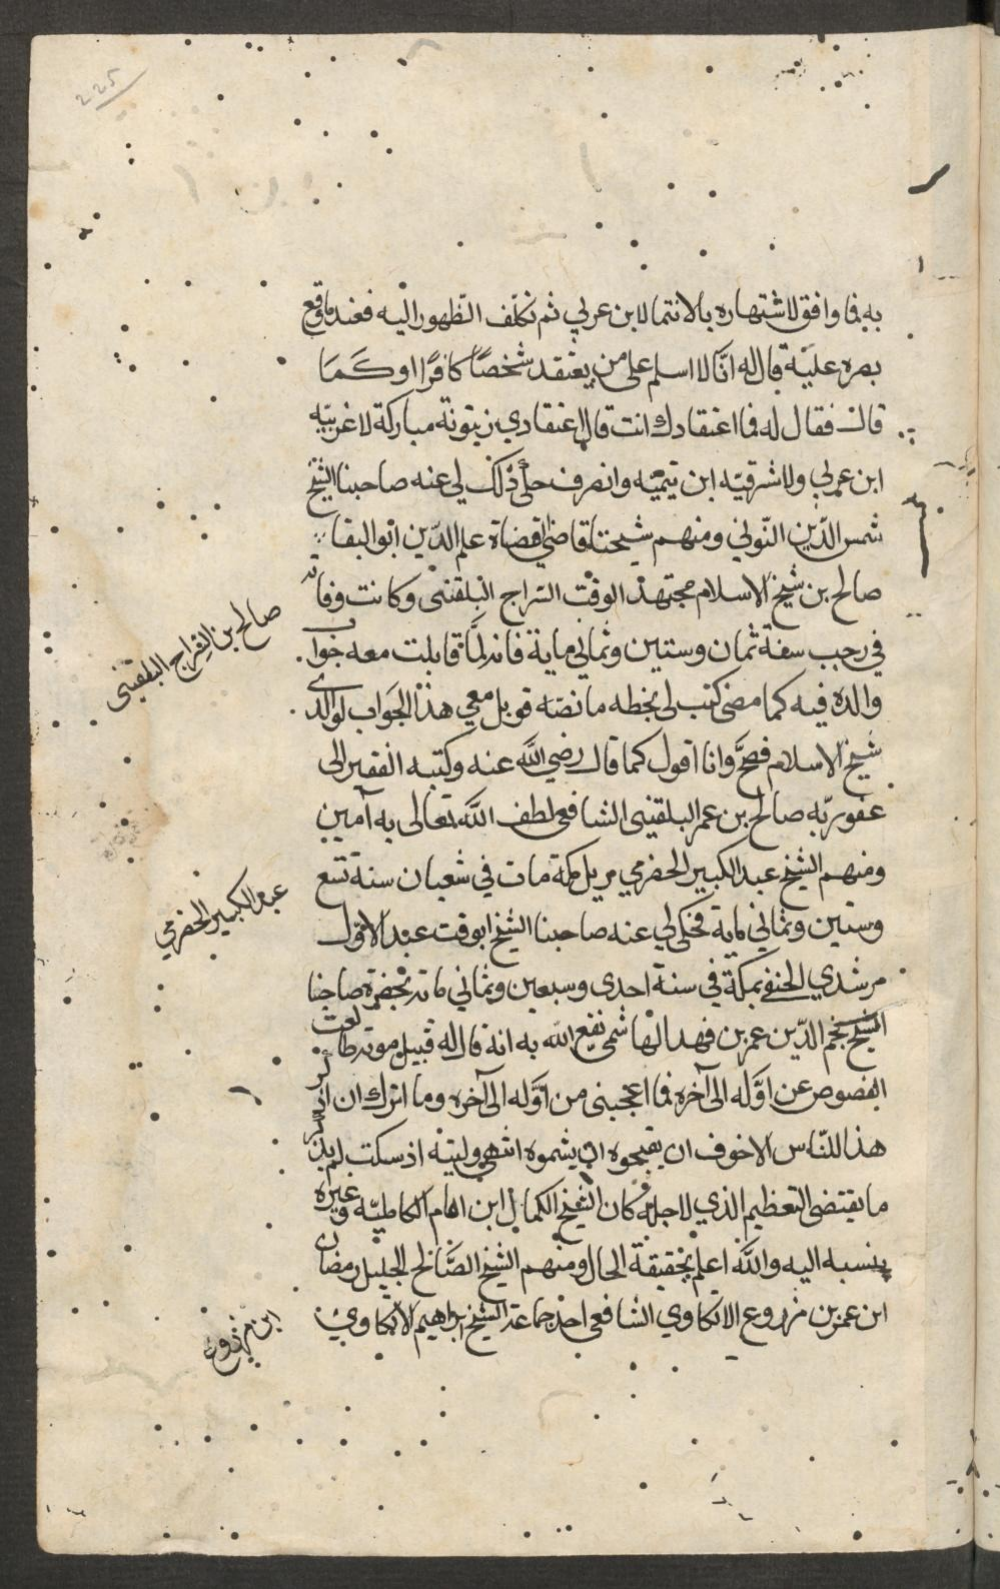 ٢٢٥
به فما وافق لاشتهاره بالانتما لابن عربي ثم تكلف الظهور اليه فعندما وقع
بصره عليه قال له انا لا اسلم على من يعتقد شخصًا كافرًا او كَمَا
قال فقال له فما اعتقادك انت قال اعتقادي زيتونة مباركة لا غربيه
ابن عربي ولا شرقيه ابن تيميه وانصرف حكى ذلك لي عنه صاحبنا الشيخ
شمس الدين النوبي ومنهم شيخنا قاضي القضاة علم الدين ابو البقا
صالح بن شيخ الاسلام مجتهد الوقت السراج البلقيني وكانت وفاته
في رجب سنة ثمان وستين وثماني ماية فانه لما قابلت معه جواب
والده فيه كما مضى كتب لي بخطه ما نصه قوبل معي هذا الجواب لوالدي
شيخ الاسلام فصحَّ وانا اقول كما قال رضي الله عنه وكتبه الفقير الى
عفو ربه صالح بن عمر البلقيني الشافعي لطف الله تعالى به آمين
ومنهم الشيخ عبد الكبير الحضرمي نزيل مكة مات في شعبان سنة تسع
وستين وثماني ماية فحكى لي عنه صاحبنا الشيخ ابو وقت عبد الاول
مرشدي الحنفي بمكة في سنة احدى وسبعين وثماني ماية بحضرة صاحبنا
الشيخ نجم الدين عمر بن فهد الهاشمي نفع الله به انه قال له قبيل موته طالعت
الفصوص عن اوَّله الى آخره فما اعجبني من اوَّله الى آخره وما اترك ان انهي
هذا للناس الا خوف ان يقبحوه او يشموه انتهى وليته اذ سكت لم يبد
ما يقتضي التعظيم الذي لاجله كان الشيخ الكمال ابن امام الكاملية وغيره
ينسبه اليه والله اعلم بحقيقة الحال ومنهم الشيخ الصالح الجليل رمضان
ابن عمر بن مزروع الاتكاوي الشافعي احد جماعة الشيخ ابراهيم الاتكاوي
صالح بن السراج البلقيني
عبد الكبير الحضرمي
ابن مزروع